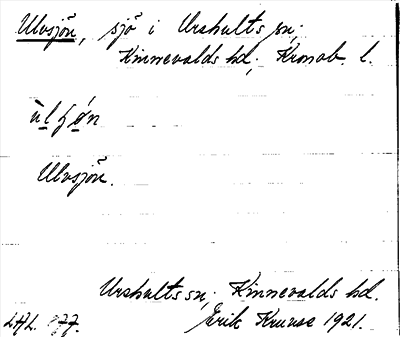 Ulvsjön, sjö i Urshults sn;
Kinnevalds hd; Kronob. l.
Ulvsjön.
Urshults sn; Kinnevalds hd.
LAL. Erik Kruuse 1921.